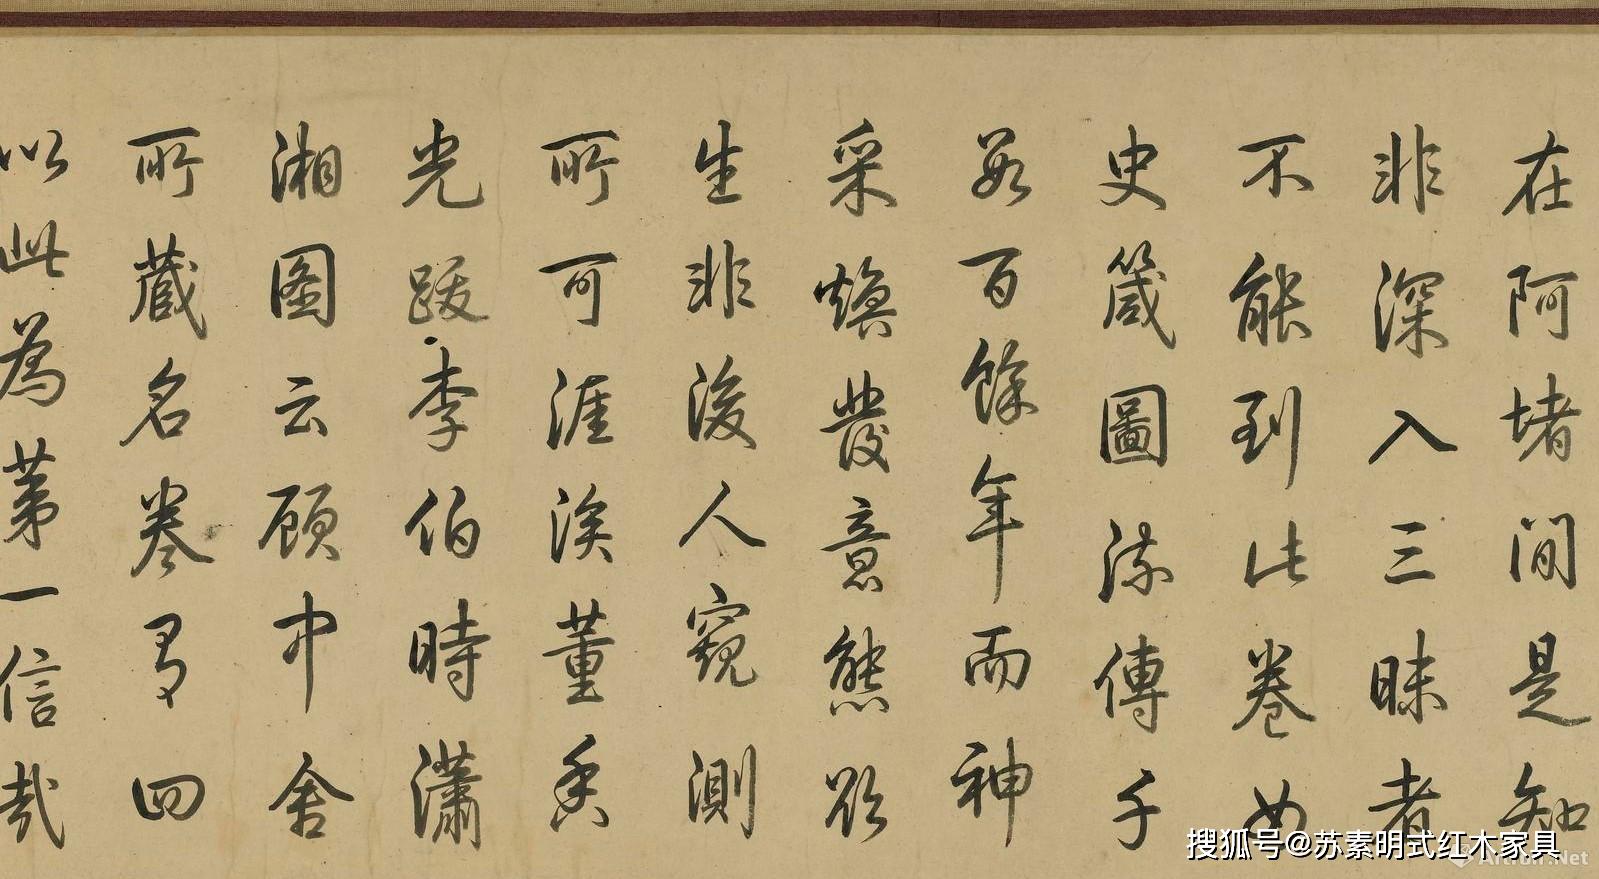 在阿堵間是知
非深入三昧者
不能到此卷女
史箴圖流傳千
數百餘年而神
采煥發意態欲
生非後人窺測
所可涯涘董香
光跋李伯時瀟
湘图云顾中舍
所蔵名卷有四
以此為苐一信哉
搜狐号@苏素明式红木家具
Artron.Net